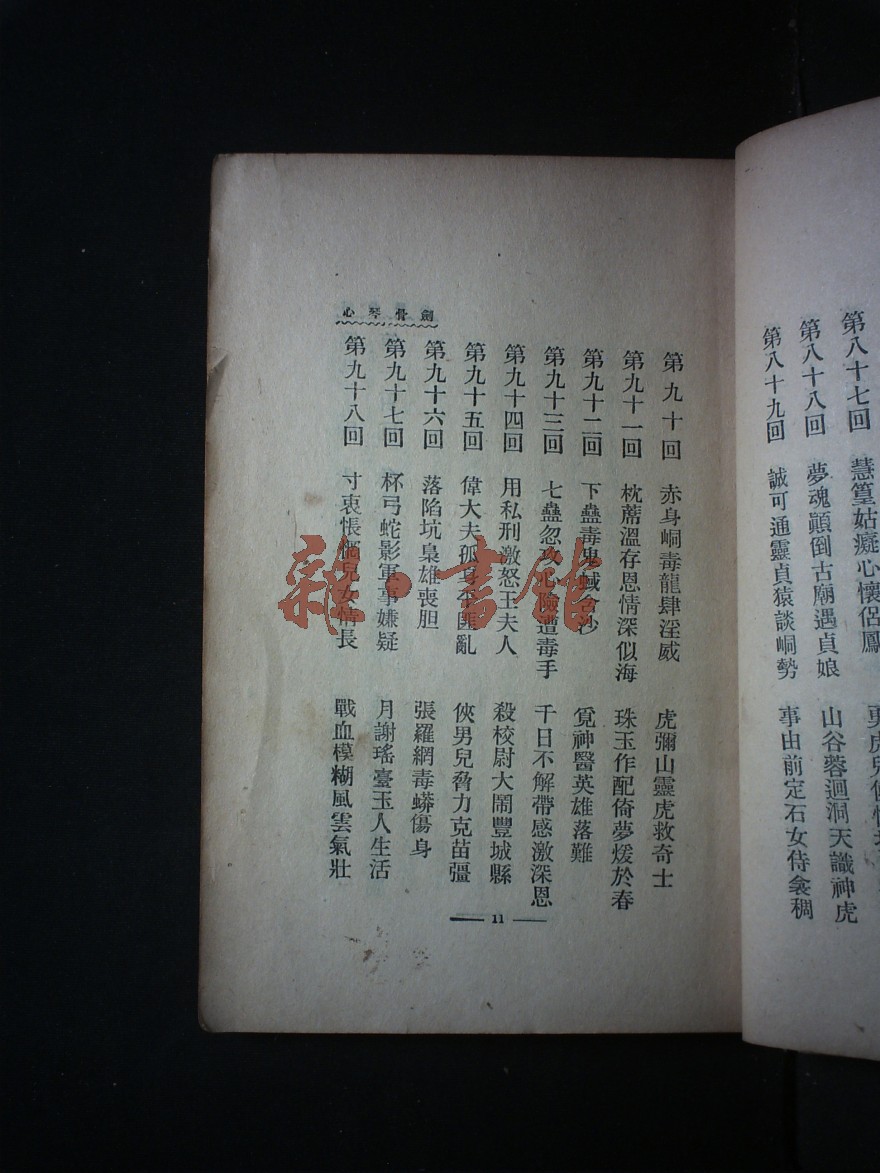 第八十七回　慧篁姑癡心懷侶鳳
第八十八回　夢魂顚倒古廟遇貞娘　山谷蓉迴洞天識神虎
第八十九回　誠可通靈貞猿談峒勢　事由前定石女侍衾稠
第九十回　赤身峒毒龍肆淫威　虎彌山靈虎救奇士
第九十一回　枕蓆溫存恩情深似海　珠玉作配倚夢煖於春
第九十二回　下蠱毒鬼蜮含沙　覓神醫英雄落難
第九十三回　七蠱忽攻心險遭毒手　千日不解帶感激深恩
第九十四回　用私刑激怒王夫人　殺校尉大鬧豐城縣
第九十五回　偉大夫孤身平匪亂　俠男兒脅力克苗彊
第九十六回　落陷坑梟雄喪胆　張羅網毒蟒傷身
第九十七回　杯弓蛇影軍事嫌疑　月謝瑤臺玉人生活
第九十八回　寸衷悵惘兒女情長　戰血模糊風雲氣壯
劍骨琴心
11
雜·書館